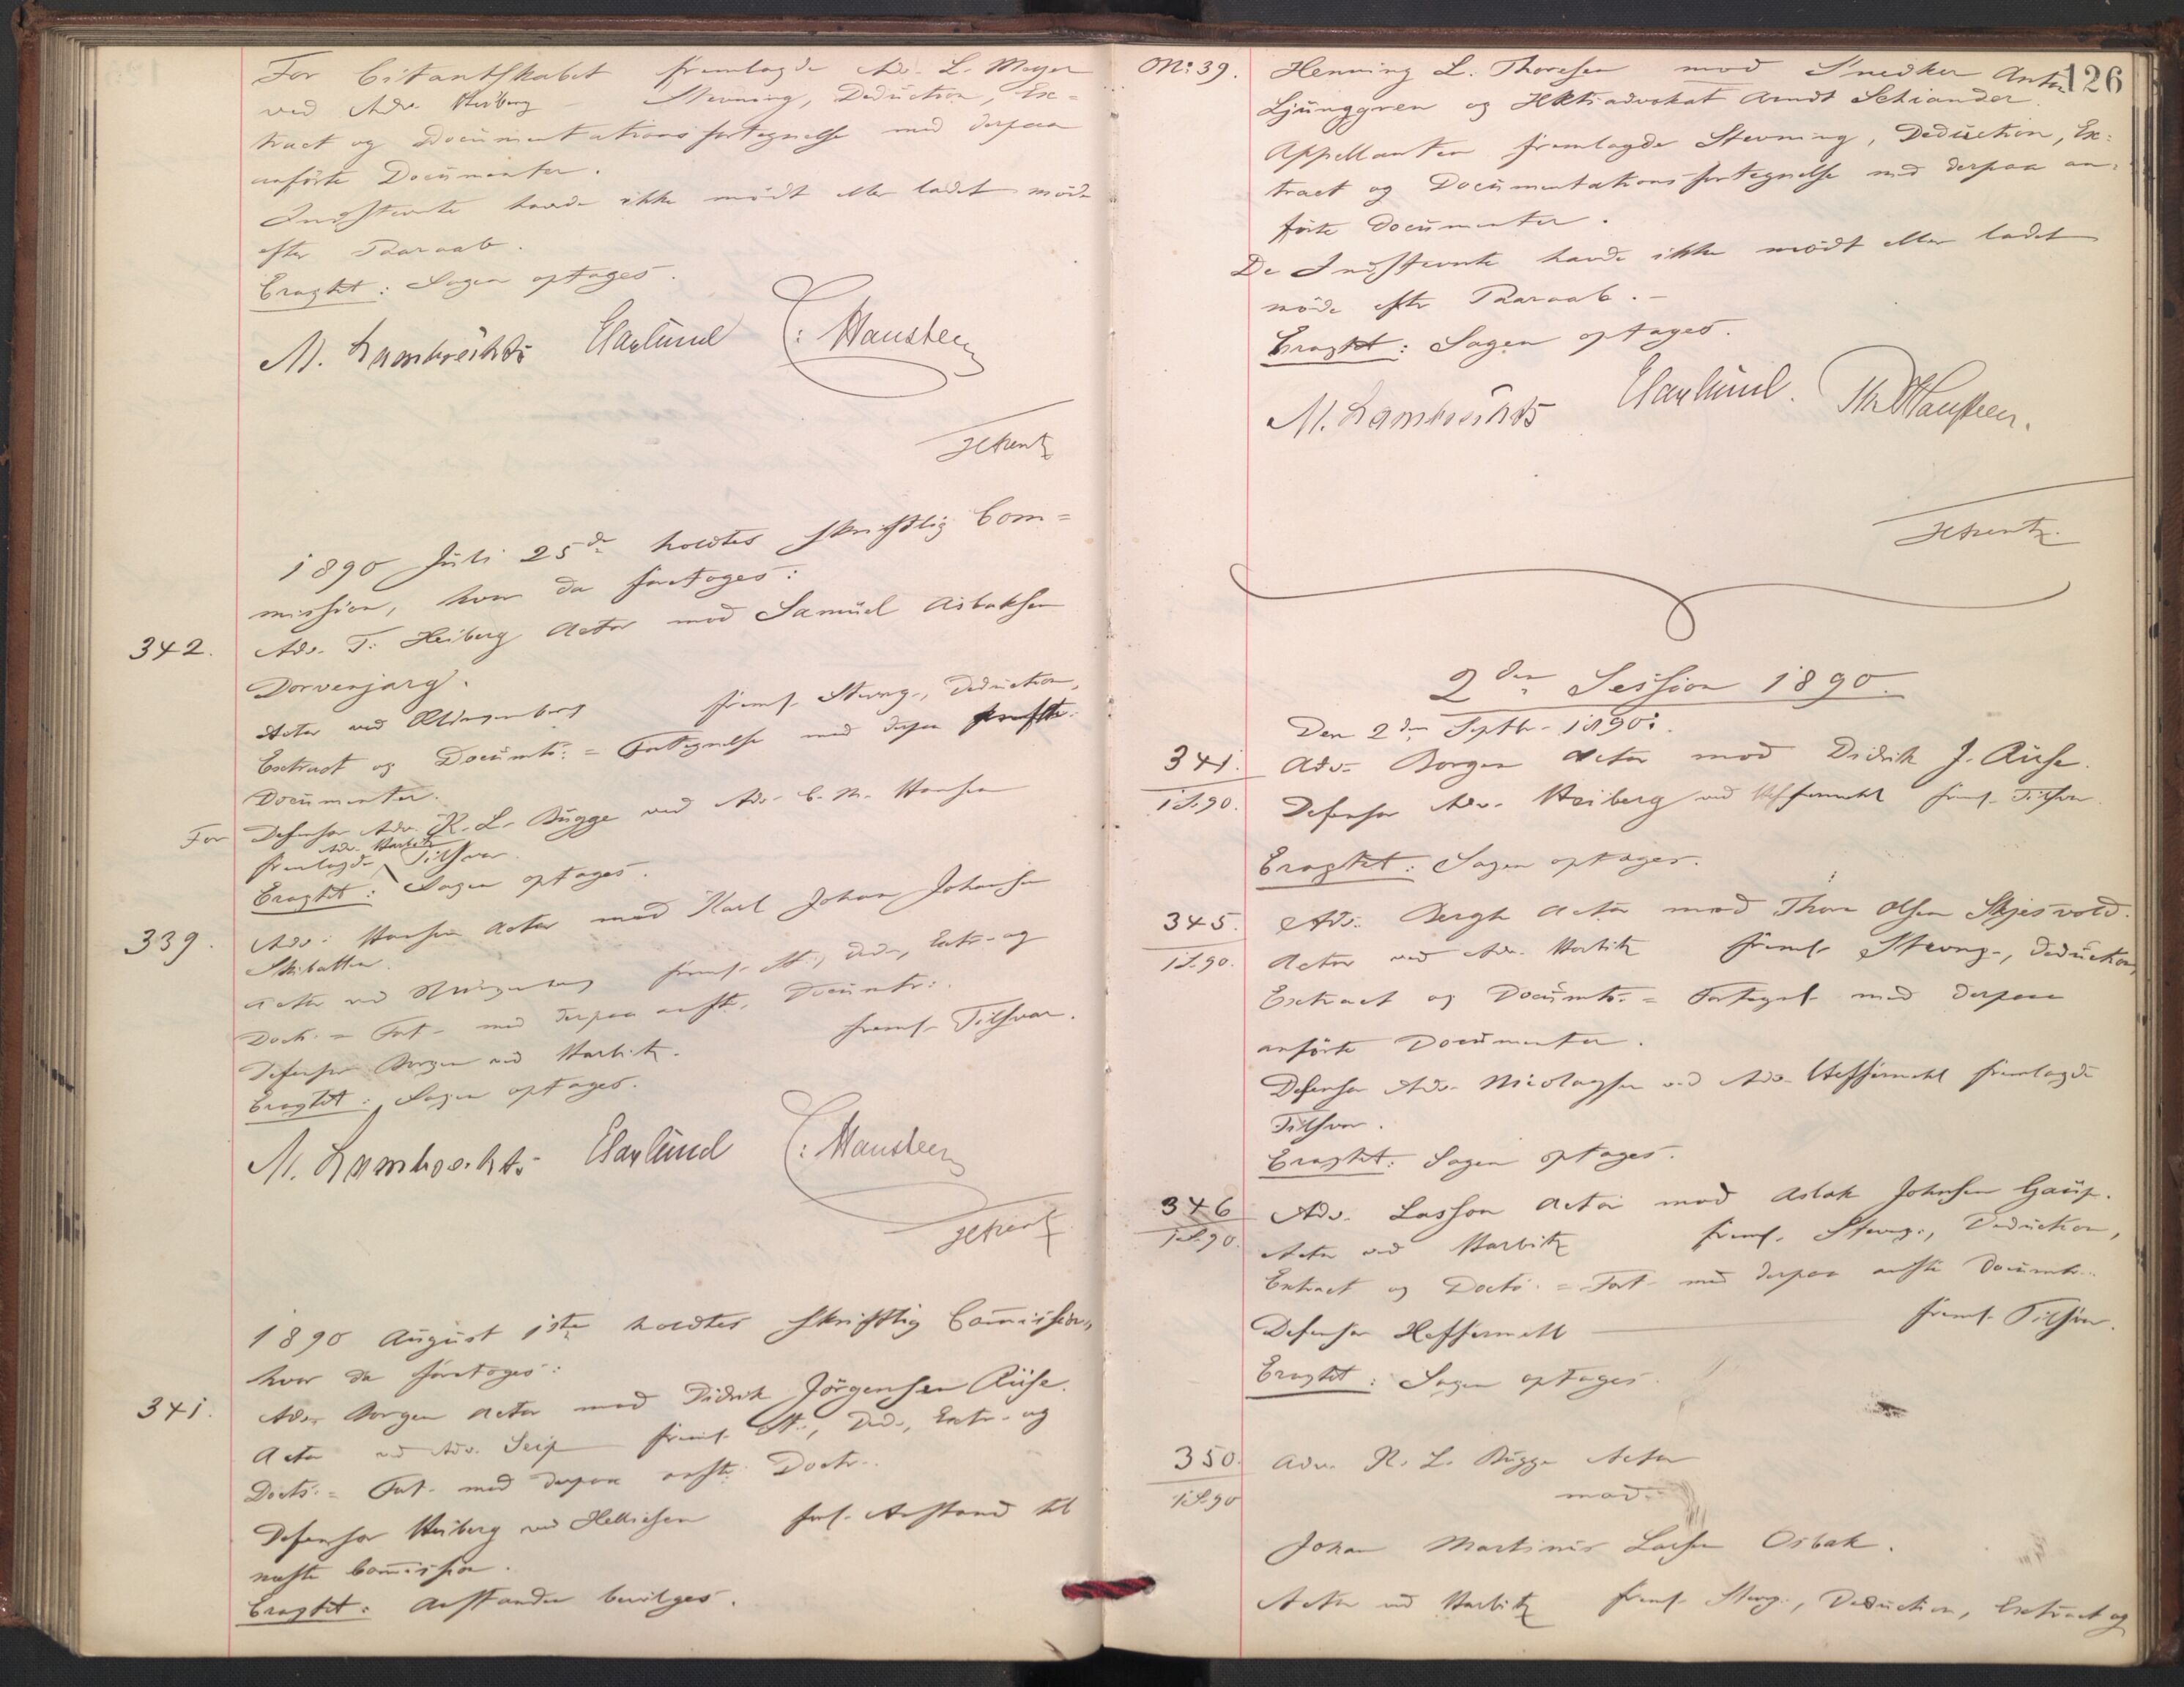 For Citantskabet fremlagde Adv. L. Meyer
ved Adv. Heiberg Stevning, Deduction, Ex=
tract og Documentationsfortegnelse med derpaa
anførte Documenter.
Indstevnte havde ikke mødt eller ladet møde
efter Paaraab.
Eragtet: Sagen optages.
M. Lambrechts Harlund C: Hansteen
1890 Juli 25de holdtes skriftlig Com=
mission, hvor da foretoges:
342. Adv. T. Heiberg Actor mod Samuel Aslaksen
Dorvenjarg.
Actor ved Klingenberg freml. Stevng., Deduction,
Extract og Documts. = Fortegnelse med derpaa
Documenter.
For Defensor Adv. K. L. Bugge ved Adv. C. M. Hansen
fremlagde Adv. Harbitz Tilsvar.
Eragtet: Sagen optages.
339. Adv. Hansen Actor mod Karl Johan Johansen
Actor ved Klingenberg freml. St., Ded., Extr. og
Docts. = Fort. med derpaa anfte. Documtr.
Defensor Borgen ved Harbitz. freml. Tilsvar.
Eragtet: Sagen optages.
M. Lambrechts Harlund C: Hansteen
1890 August 1ste holdtes skriftlig Commission,
hvor da foretoges:
341. Adv. Borgen Actor mod Didrik Jörgensen Ruse.
Actor ved Adv. Seip freml. St., Ded., Extr. og
Docts. = Fort. med derpaa anfte. Doctr.
Defensor Heiberg ved Helliesen forl. Anstand til
næste Commission.
Eragtet: Anstanden bevilges.
126
No 39. Henning L. Thoresen mod Snedker Anton
Ljunggren og HRtsadvokat Arndt Schiander.
Appellanten fremlagde Stevning, Deduction, Ex=
tract og Documentationsfortegnelse med derpaa an=
førte Documenter.
De Indstevnte havde ikke mødt eller ladet
møde efter Paaraab. -
Eragtet: Sagen optages.
M. Lambrechts Harlund. Hansteen.
2den Session 1890.
Den 2den Septbr. 1890:
341. Adv. Borgen Actor mod Didrik J. Ruse.
1 S. 90. Defensor Adv. Heiberg ved Heffermehl freml. Tilsvar.
Eragtet: Sagen optages.
345. Adv. Bergh Actor mod Thore Olsen Skjesvold.
1 S. 90. Actor ved Adv. Harbitz freml. Stevng., Deduction,
Extract og Documts. = Fortegnl. med derpaa
anførte Documenter.
Defensor Adv. Nicolaysen ved Adv. Heffermehl fremlagde
Tilsvar.
Eragtet: Sagen optages.
346 Adv. Lasson Actor mod Aslak Johnsen Gaup.
1 S. 90. Actor ved Harbitz freml. Stevng., Deduction,
Extract og Docts. = Fort. med derpaa anfte Documtr.
Defensor Heffermehl freml. Tilsvar.
Eragtet: Sagen optages.
350. Adv. K. L. Bugge Actor
1 S. 90 mod
Johan Martinus Larsen Osbak.
Actor ved Harbitz freml. Stevng., Deduction, Extract og